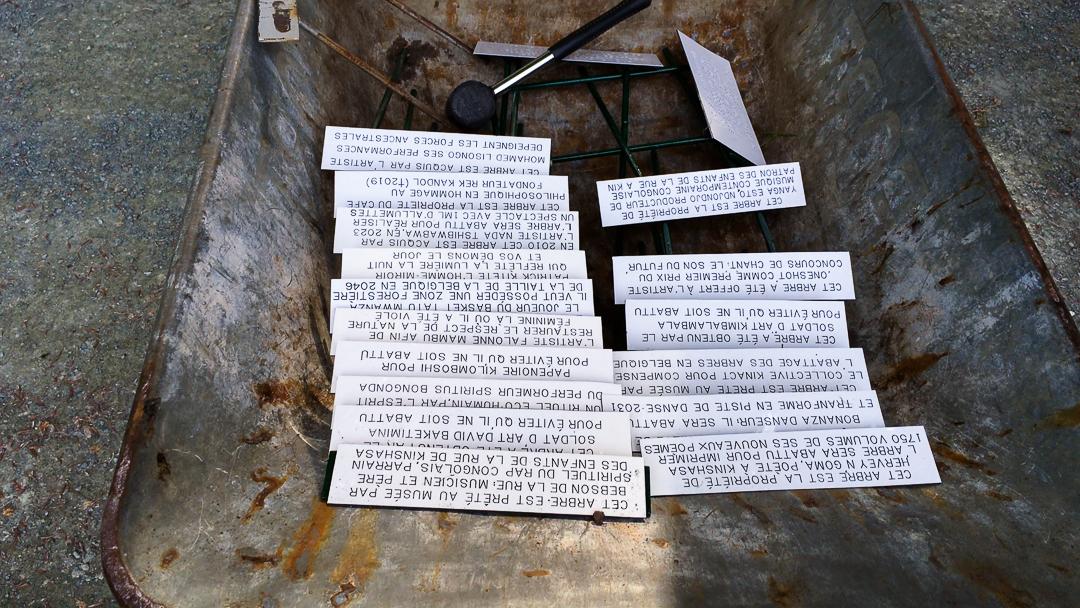 CET ARBRE EST ACQUIS PAR L'ARTISTE
MOHAMED LISONGO SES PERFORMANCES
DEPEIGNENT LES FORCES ANCESTRALES
CET ARBRE EST LA PROPRIÉTÉ DU CAFE
PHILOSOPHIQUE EN HOMMAGE AU
FONDATEUR REK KANDOL (†2019)
EN 2010 CET ARBRE EST ACQUIS PAR
L'ARTISTE NADA TSHIBWABWA,EN 2023
L'ARBRE SERA ABATTU POUR RÉALISER
UN SPECTACLE AVEC 1ML D'ALLUMETTES
PATRICK KITETE L'HOMME-MIROIR
QUI REFLÈTE LA LUMIÈRE LA NUIT
ET VOS DÉMONS LE JOUR
LE JOUEUR DU BASKET TATU MWANZA
IL VEUT POSSÉDER UNE ZONE FORESTIÈRE
DE LA TAILLE DE LA BELGIQUE EN 2046
L'ARTISTE FALONNE MAMBU AFIN DE
RESTAURER LE RESPECT DE LA NATURE
FÉMININE LÀ OÙ IL A ÉTÉ VIOLÉ
PAPENOIRE KILOMBOSHI POUR
POUR ÉVITER QU'IL NE SOIT ABATTU
UN RITUEL ECO-HUMAIN,PAR L'ESPRIT
DU PERFORMEUR SPIRITUS BONGONDA
SOLDAT D'ART DAVID BAKETIMINA
POUR ÉVITER QU'IL NE SOIT ABATTU
CET ARBRE EST PRÊTÉ AU MUSÉE PAR
BEBSON DE LA RUE: MUSICIEN ET PÈRE
SPIRITUEL DU RAP CONGOLAIS, PARRAIN
DES ENFANTS DE LA RUE DE KINSHASA
CET ARBRE EST LA PROPRIÉTÉ DE
YANGA ESTO, NDJONDJO PRODUCTEUR DE
MUSIQUE CONTEMPORAINE CONGOLAISE
PATRON DES ENFANTS DE LA RUE A KIN
CET ARBRE A ÉTÉ OFFERT À L'ARTISTE
ONESHOT COMME PREMIER PRIX DU
CONCOURS DE CHANT: LE SON DU FUTUR
CET ARBRE A ÉTÉ OBTENU PAR LE
SOLDAT D'ART KINBALAMBALA
POUR ÉVITER QU'IL NE SOIT ABATTU
CET ARBRE EST PRÊTÉ AU MUSÉE PAR
LE COLLECTIVE KINACT POUR COMPENSER
L'ABATTAGE DES ARBRES EN BELGIQUE
BONANZA DANSEUR: IL SERA ABATTU
ET TRANFORMÉ EN PISTE DE DANSE-2031
CET ARBRE EST LA PROPRIÉTÉ DE
HERVEY N'GOMA, POÈTE À KINSHASA
L'ARBRE SERA ABATTU POUR IMPRIMER
1750 VOLUMES DE SES NOUVEAUX POÈMES